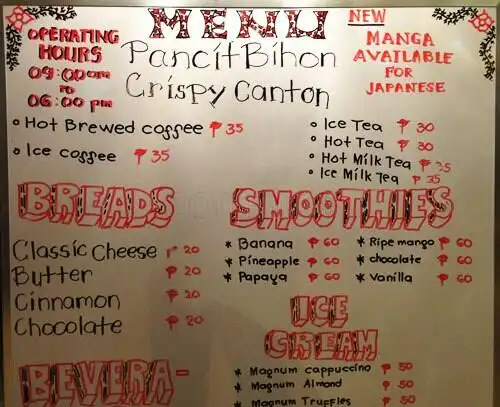 MENU
OPERATING
HOURS
09:00am
TO
06:00 pm
Pancit Bihon
Crispy Canton
NEW
MANGA
AVAILABLE
FOR
JAPANESE
Hot Brewed coffee ₱ 35
Ice coffee ₱ 35
Ice Tea ₱ 30
Hot Tea ₱ 30
Hot Milk Tea ₱ 35
Ice Milk Tea ₱ 35
BREADS
Classic Cheese ₱ 20
Butter ₱ 20
Cinnamon ₱ 20
Chocolate ₱ 20
SMOOTHIES
* Banana ₱ 60
* Pineapple ₱ 60
* Papaya ₱ 60
* Ripe mango ₱ 60
* chocolate ₱ 60
* Vanilla ₱ 60
ICE
CREAM
* Magnum cappuccino ₱ 50
* Magnum Almond ₱ 50
* Magnum Truffles ₱ 50
BEVERA-